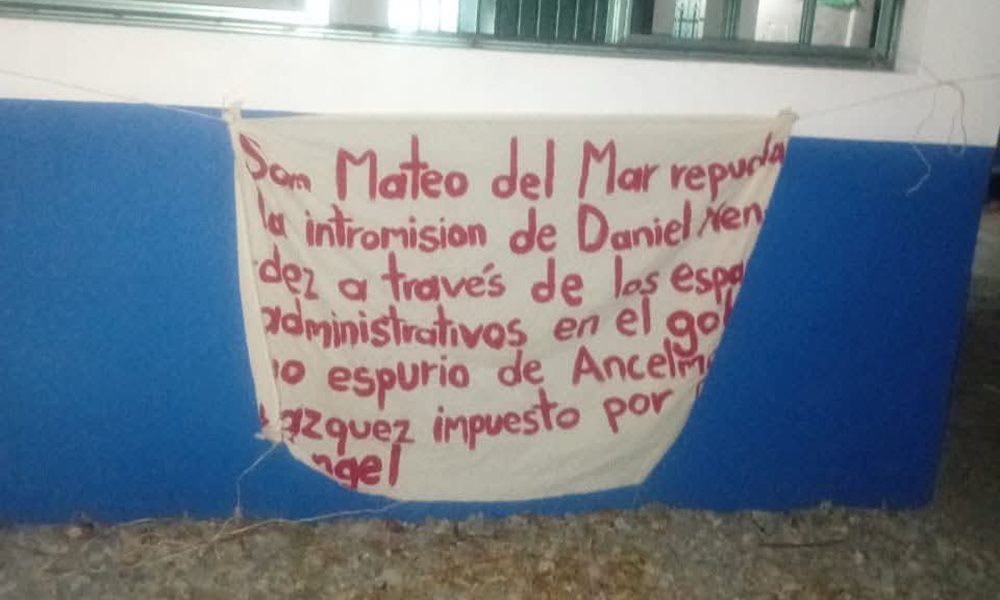 San Mateo del Mar repudia
la intromision de Daniel Men
dez a través de los espa
administrativos en el gob
no espurio de Ancelmo
azquez impuesto por
ngel